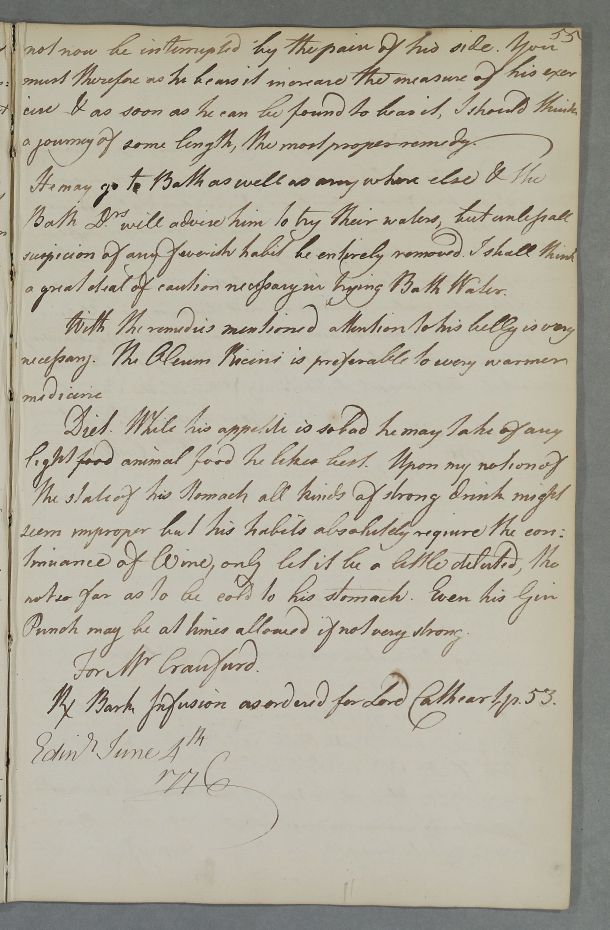 55
not now be interrupted by the pain of his side. You
must therefore as he bears it increase the measure of his exer
cise & as soon as he can be found to bear it, I should think
a journey of some length, the most proper remedy.
He may go to Bath as well as any where else & the
Bath Drs. will advise him to try their waters, but unless all
suspicion of any feverish habit be entirely removed I shall think
a great deal of caution necessary in trying Bath Water.
With the remedies mentioned attention to his belly is very
necessary. The Oleum Ricini is preferable to every warmer
medicine
Diet. While his appetite is so bad he may take of any
light food animal food he likes best. Upon my notion of
the state of his stomach all kinds of strong drink might
seem improper but his habits absolutely require the con:
tinuance of Wine, only let it be a little diluted, tho
not so far as to be cold to his stomach. Even his Gin
Punch may be at times allowed if not very strong.
For Mr Craufurd.
℞ Bark Infusion as ordered for Lord Cathcart p. 53.
Edinr. June 4th
1776